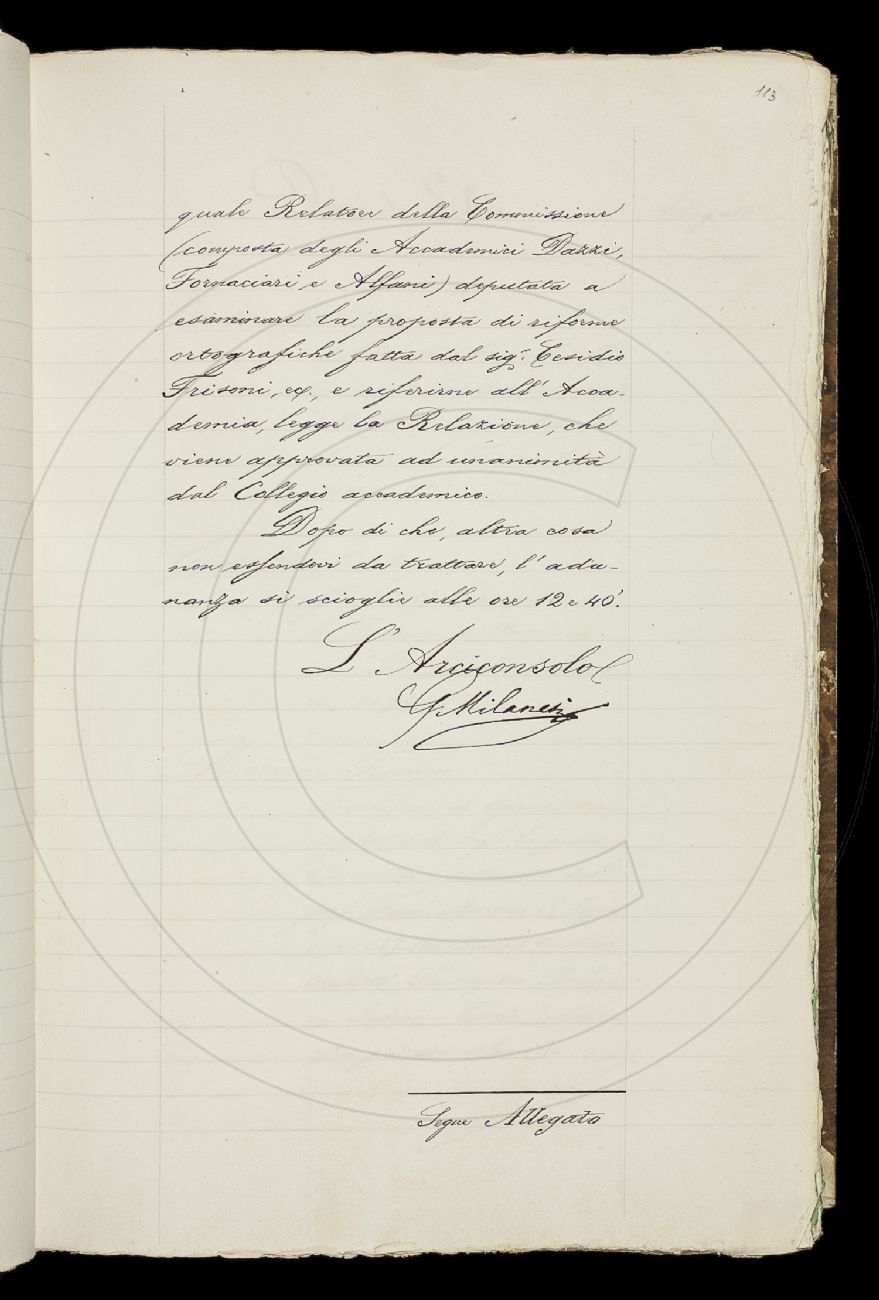 113
quale Relatore della Commissione
(composta degli Accademici Dazzi,
Fornaciari, e Alfani) deputata a
esaminare la proposta di riforme
ortografiche fatta dal sig.r Cesidio
Frisoni, e riferirne all' Acca-
demia, legge la Relazione, che
viene approvata ad unanimità
dal Collegio accademico.
Dopo di che, altra cosa
non essendovi da trattare, l' adu-
nanza si scioglie alle ore 12 e 40'.
L' Arciconsolo
G. Milanesi
Segue Allegato